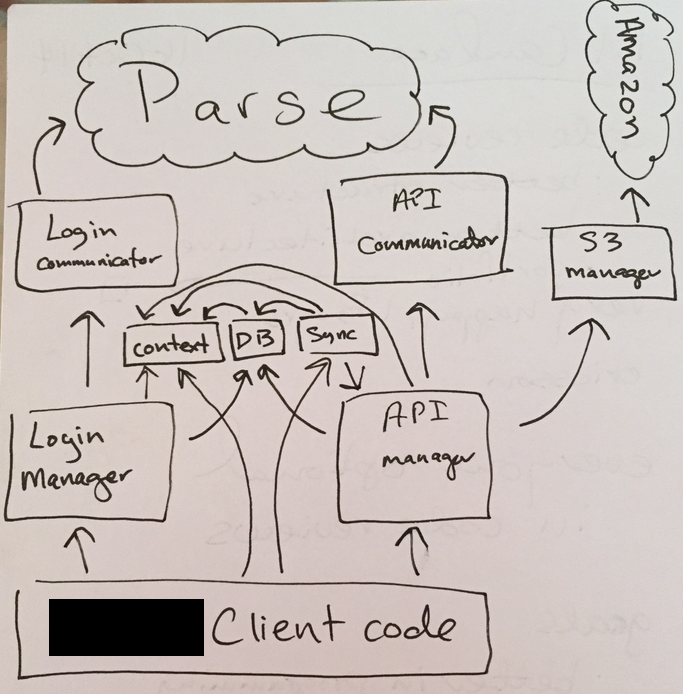 Parse
Amazon
Login
communicator
API
Communicator
S3
manager
context
DB
Sync
Login
Manager
API
manager
Client code